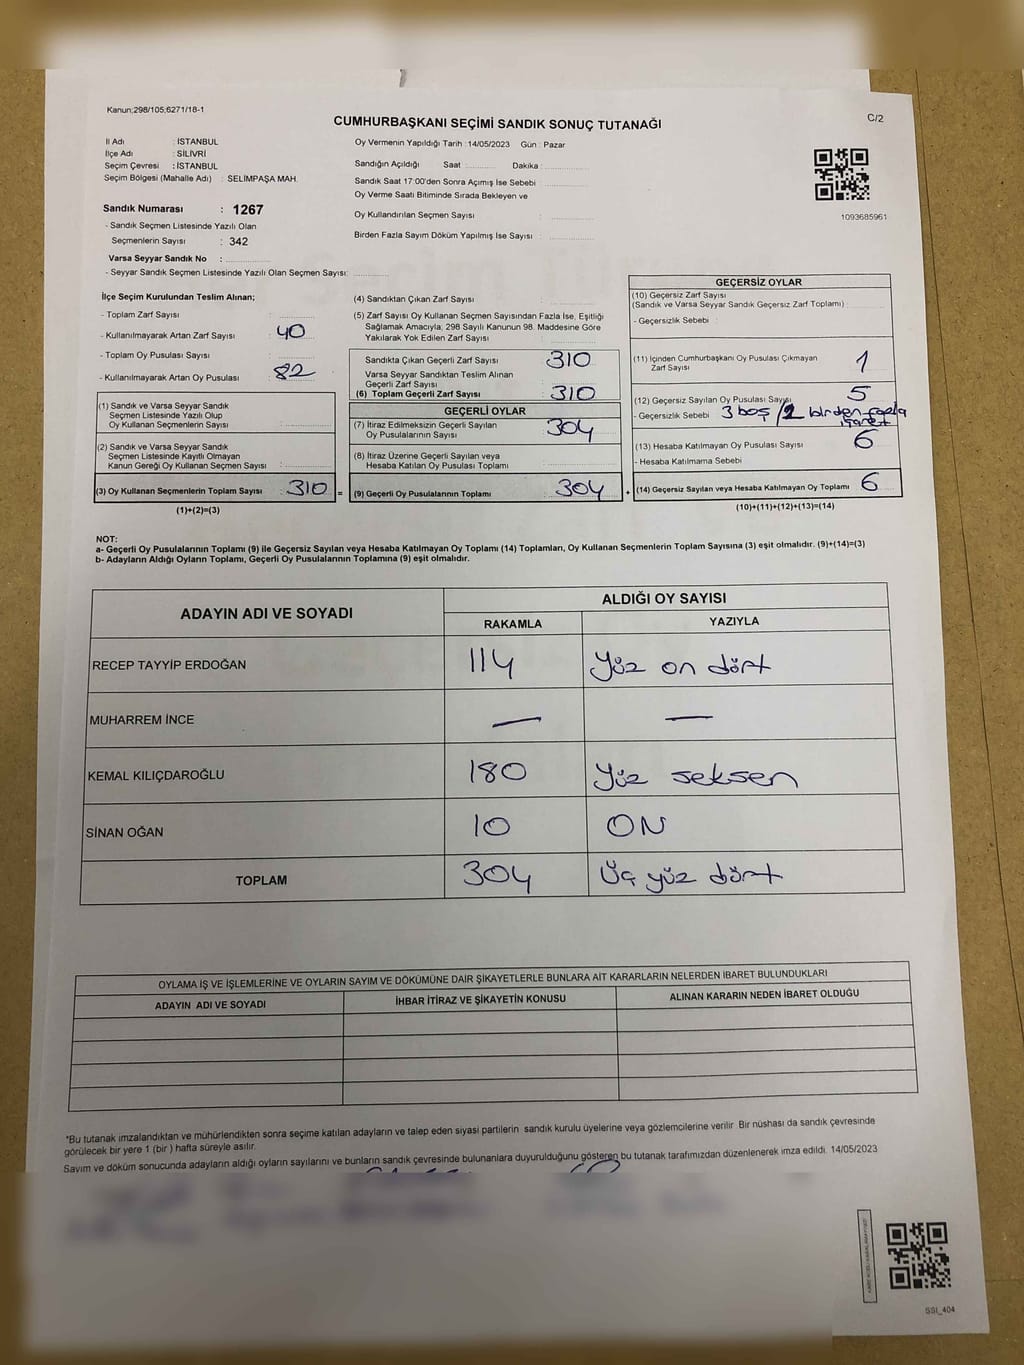 Kanun;298/105;6271/18-1
C/2
CUMHURBAŞKANI SEÇİMİ SANDIK SONUÇ TUTANAĞI
İl Adı : İSTANBUL
İlçe Adı : SİLİVRİ
Seçim Çevresi : İSTANBUL
Seçim Bölgesi (Mahalle Adı) : SELİMPAŞA MAH.
Oy Vermenin Yapıldığı Tarih : 14/05/2023 Gün : Pazar
Sandığın Açıldığı Saat :........... Dakika :...........
Sandık Saat 17:00'den Sonra Açımış İse Sebebi :
Oy Verme Saati Bitiminde Sırada Bekleyen ve
Oy Kullandırılan Seçmen Sayısı :
Birden Fazla Sayım Döküm Yapılmış İse Sayısı :
1093685961
Sandık Numarası : 1267
- Sandık Seçmen Listesinde Yazılı Olan
Seçmenlerin Sayısı : 342
Varsa Seyyar Sandık No :
- Seyyar Sandık Seçmen Listesinde Yazılı Olan Seçmen Sayısı:
İlçe Seçim Kurulundan Teslim Alınan;
- Toplam Zarf Sayısı :
- Kullanılmayarak Artan Zarf Sayısı : 40
- Toplam Oy Pusulası Sayısı :
- Kullanılmayarak Artan Oy Pusulası : 82
(1) Sandık ve Varsa Seyyar Sandık
Seçmen Listesinde Yazılı Olup
Oy Kullanan Seçmenlerin Sayısı :
(2) Sandık ve Varsa Seyyar Sandık
Seçmen Listesinde Kayıtlı Olmayan
Kanun Gereği Oy Kullanan Seçmen Sayısı :
(3) Oy Kullanan Seçmenlerin Toplam Sayısı : 310 =
(1)+(2)=(3)
(4) Sandıktan Çıkan Zarf Sayısı :
(5) Zarf Sayısı Oy Kullanan Seçmen Sayısından Fazla İse, Eşitliği
Sağlamak Amacıyla; 298 Sayılı Kanunun 98. Maddesine Göre
Yakılarak Yok Edilen Zarf Sayısı :
Sandıkta Çıkan Geçerli Zarf Sayısı : 310
Varsa Seyyar Sandıktan Teslim Alınan
Geçerli Zarf Sayısı :
(6) Toplam Geçerli Zarf Sayısı : 310
GEÇERLİ OYLAR
(7) İtiraz Edilmeksizin Geçerli Sayılan
Oy Pusulalarının Sayısı : 304
(8) İtiraz Üzerine Geçerli Sayılan veya
Hesaba Katılan Oy Pusulası Toplamı :
(9) Geçerli Oy Pusulalarının Toplamı : 304 +
GEÇERSİZ OYLAR
(10) Geçersiz Zarf Sayısı
(Sandık ve Varsa Seyyar Sandık Geçersiz Zarf Toplamı) :
- Geçersizlik Sebebi :
(11) İçinden Cumhurbaşkanı Oy Pusulası Çıkmayan
Zarf Sayısı : 1
(12) Geçersiz Sayılan Oy Pusulası Sayısı : 5
- Geçersizlik Sebebi : 3 boş / 2 birden fazla
işaret
(13) Hesaba Katılmayan Oy Pusulası Sayısı : 6
- Hesaba Katılmama Sebebi
(14) Geçersiz Sayılan veya Hesaba Katılmayan Oy Toplamı : 6
(10)+(11)+(12)+(13)=(14)
NOT:
a- Geçerli Oy Pusulalarının Toplamı (9) ile Geçersiz Sayılan veya Hesaba Katılmayan Oy Toplamı (14) Toplamları, Oy Kullanan Seçmenlerin Toplam Sayısına (3) eşit olmalıdır. (9)+(14)=(3)
b- Adayların Aldığı Oyların Toplamı, Geçerli Oy Pusulalarının Toplamına (9) eşit olmalıdır.
ADAYIN ADI VE SOYADI
ALDIĞI OY SAYISI
RAKAMLA YAZIYLA
RECEP TAYYİP ERDOĞAN 114 Yüz on dört
MUHARREM İNCE — —
KEMAL KILIÇDAROĞLU 180 Yüz seksen
SİNAN OĞAN 10 ON
TOPLAM 304 Üç yüz dört
OYLAMA İŞ VE İŞLEMLERİNE VE OYLARIN SAYIM VE DÖKÜMÜNE DAİR ŞİKAYETLERLE BUNLARA AİT KARARLARIN NELERDEN İBARET BULUNDUKLARI
ADAYIN ADI VE SOYADI İHBAR İTİRAZ VE ŞİKAYETİN KONUSU ALINAN KARARIN NEDEN İBARET OLDUĞU
*Bu tutanak imzalandıktan ve mühürlendikten sonra seçime katılan adayların ve talep eden siyasi partilerin sandık kurulu üyelerine veya gözlemcilerine verilir. Bir nüshası da sandık çevresinde
görülecek bir yere 1 (bir ) hafta süreyle asılır.
Sayım ve döküm sonucunda adayların aldığı oyların sayılarını ve bunların sandık çevresinde bulunanlara duyurulduğunu gösteren bu tutanak tarafımızdan düzenlenerek imza edildi. 14/05/2023
SSI_404